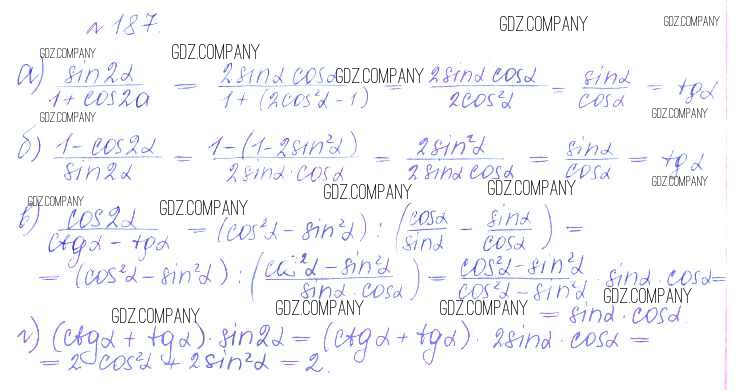 № 187.
GDZ.COMPANY GDZ.COMPANY
GDZ.COMPANY GDZ.COMPANY GDZ.COMPANY
а) sin2α / (1 + cos2α) = 2sinα cosα / (1 + (2cos²α - 1)) = 2sinα cosα / 2cos²α = sinα / cosα = tgα
GDZ.COMPANY GDZ.COMPANY
б) (1 - cos2α) / sin2α = (1 - (1 - 2sin²α)) / (2sinα · cosα) = 2sin²α / (2sinα cosα) = sinα / cosα = tgα
GDZ.COMPANY GDZ.COMPANY GDZ.COMPANY
GDZ.COMPANY GDZ.COMPANY
в) cos2α / (ctgα - tgα) = (cos²α - sin²α) : (cosα / sinα - sinα / cosα) =
= (cos²α - sin²α) : ((cos²α - sin²α) / (sinα · cosα)) = (cos²α - sin²α) / (cos²α - sin²α) · sinα · cosα =
GDZ.COMPANY GDZ.COMPANY GDZ.COMPANY GDZ.COMPANY
= sinα · cosα
г) (ctgα + tgα) · sin2α = (ctgα + tgα) · 2sinα · cosα =
= 2 cos²α + 2sin²α = 2.
GDZ.COMPANY